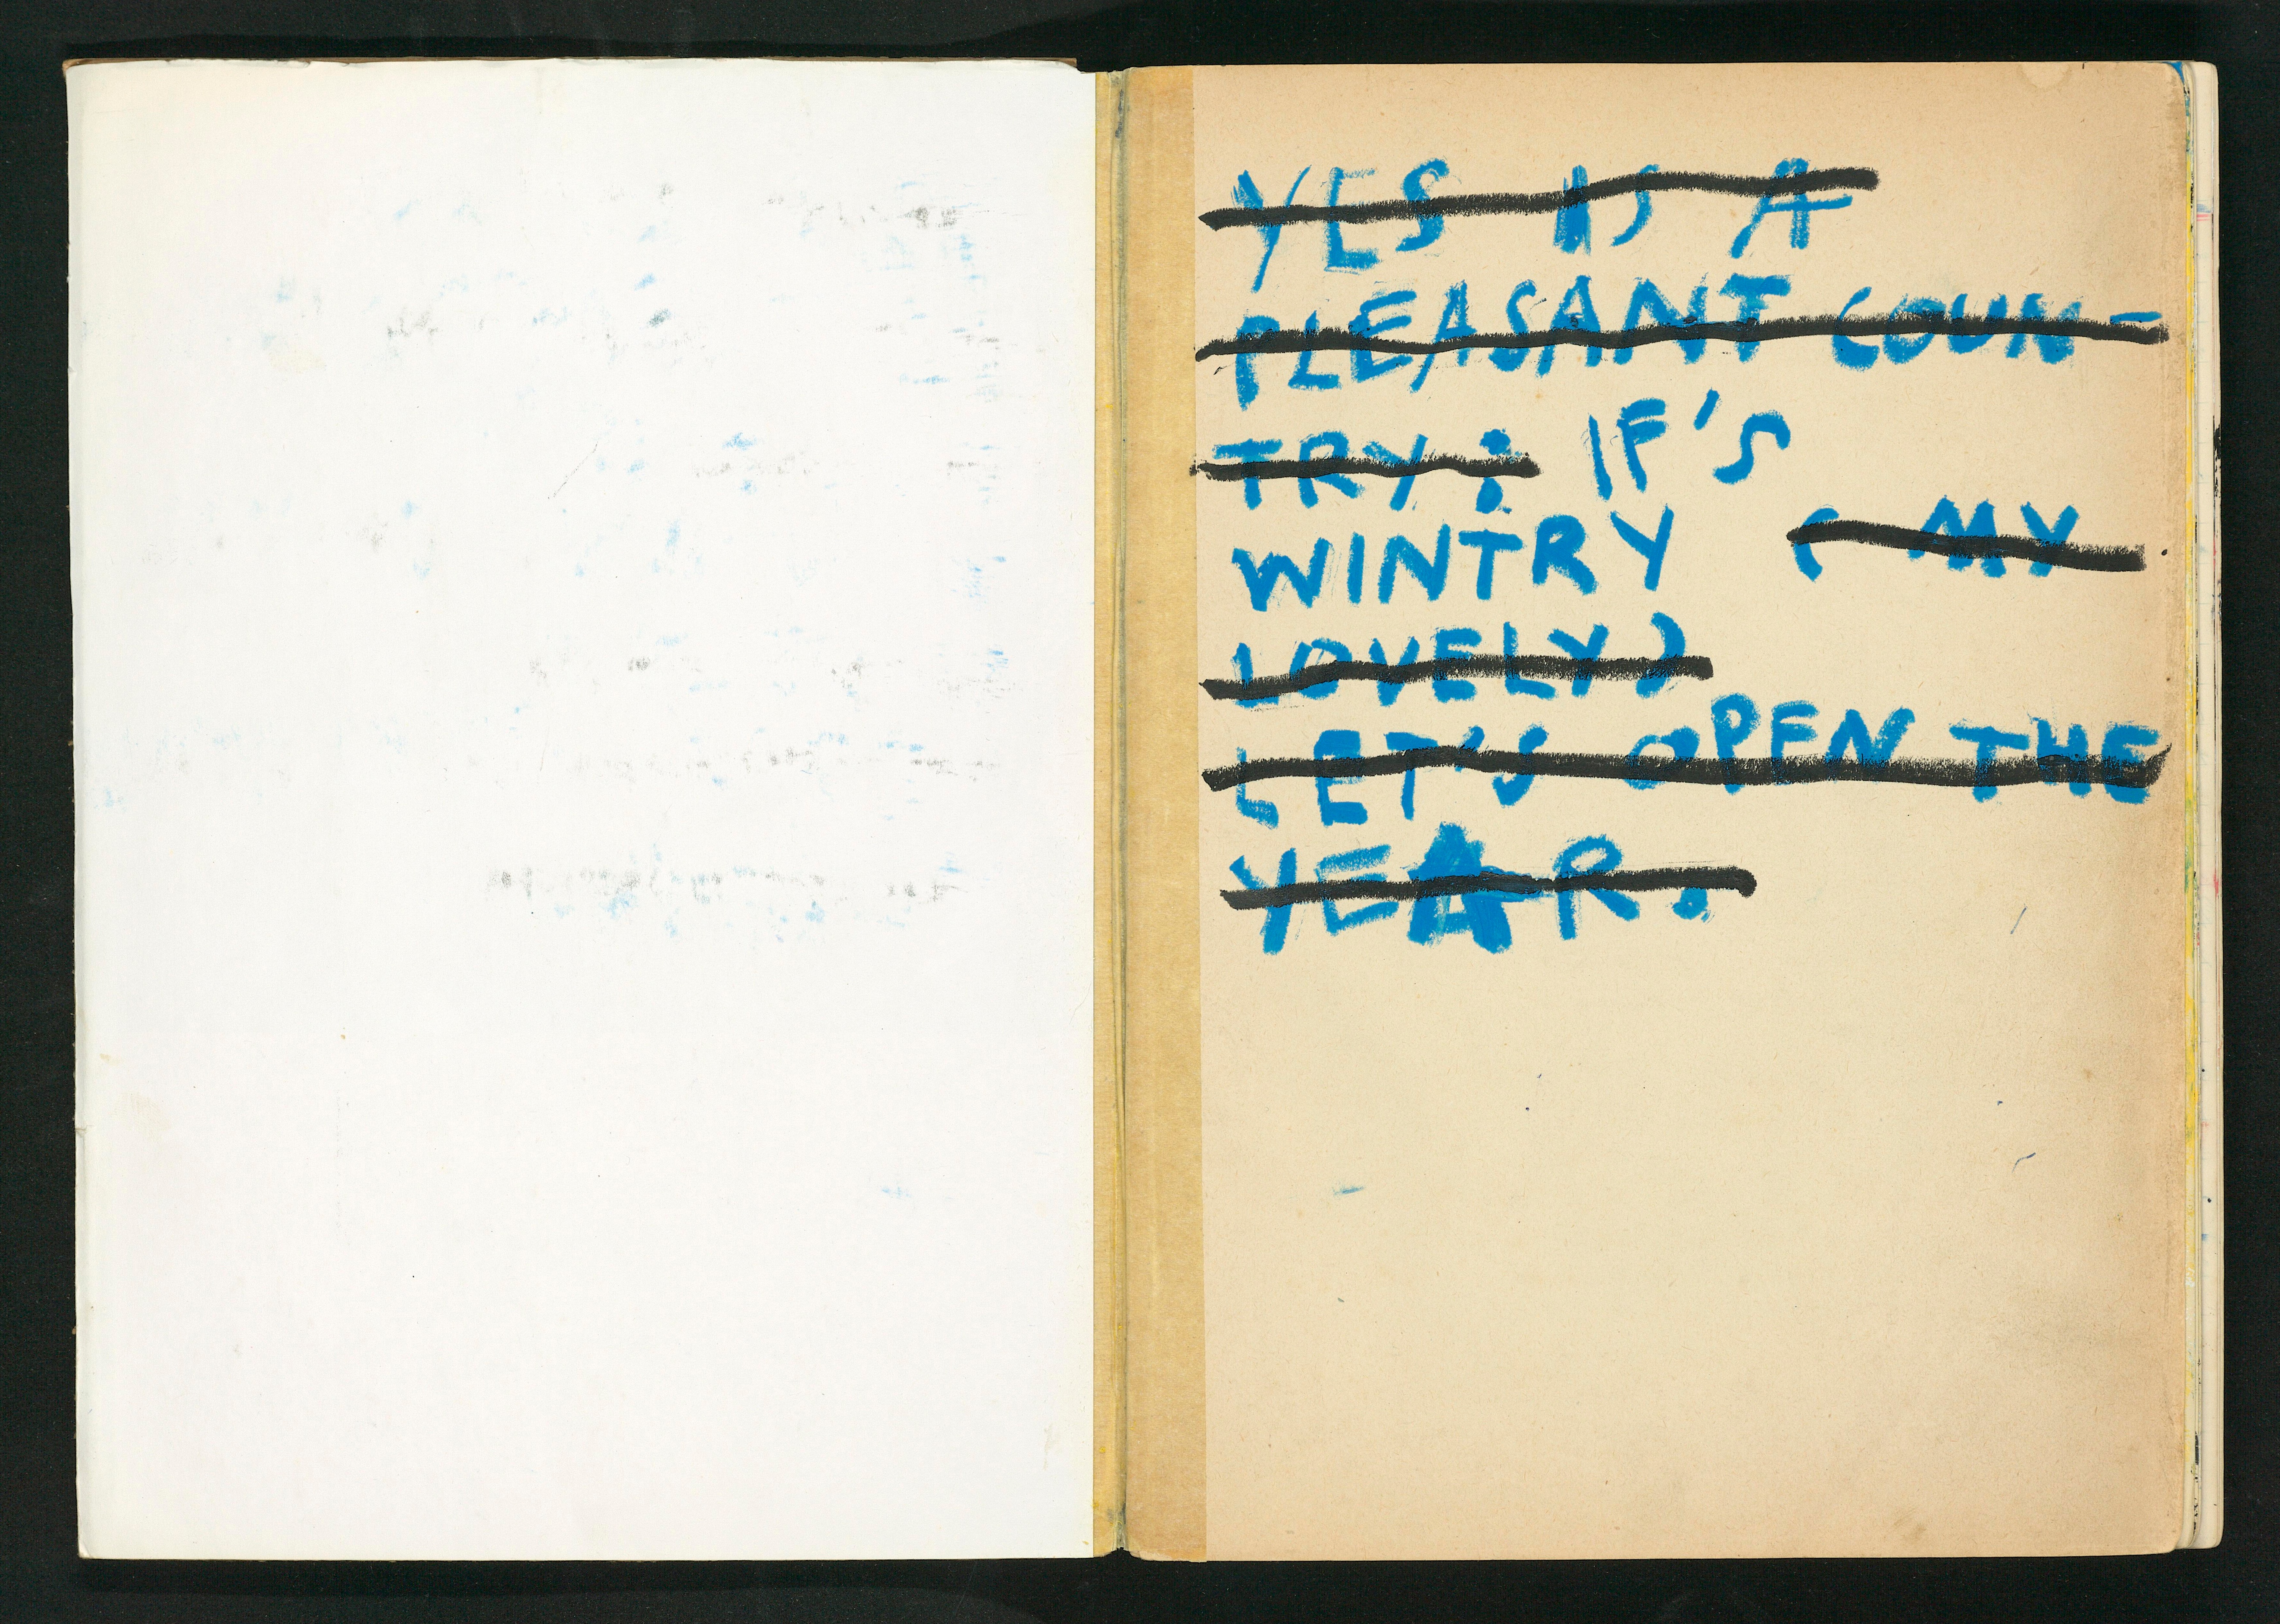 YES IS A
PLEASANT COUN-
TRY: IF'S
WINTRY (MY
LOVELY)
LET'S OPEN THE
YEAR.